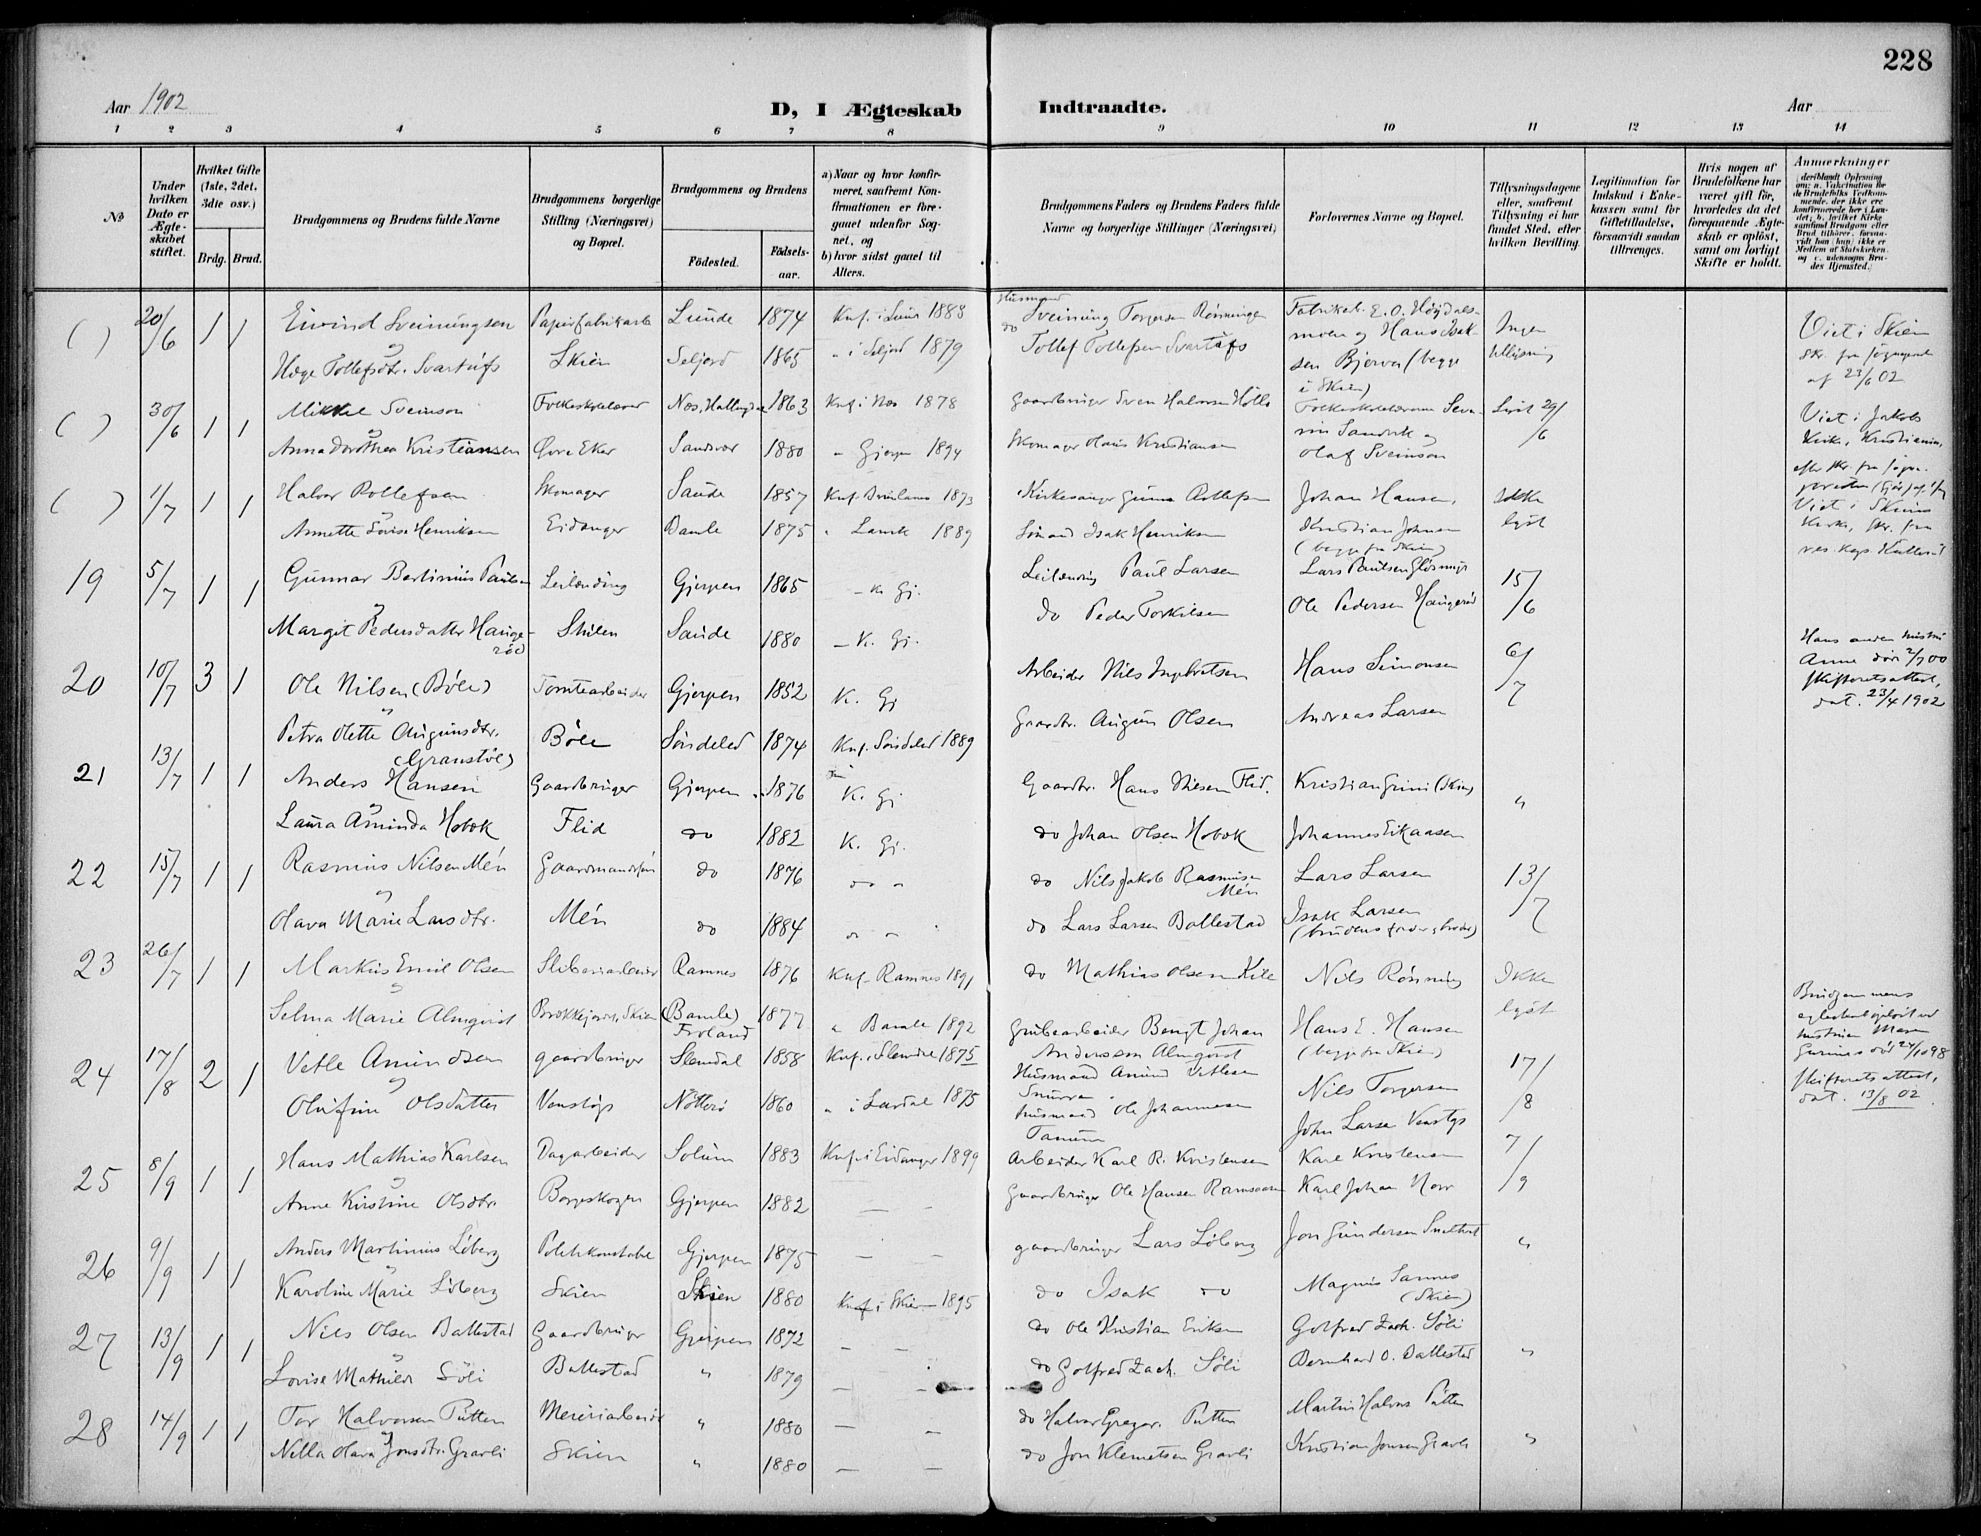 228
Aar 1902
D, I Ægteskab Indtraadte.
Aar
1 2 3 4 5 6 7 8 9 10 11 12 13 14
No
Under hvilken Dato er Ægteskabet stiftet.
Hvilket Gifte (1ste, 2det, 3die osv.)
Brdg. Brud.
Brudgommens og Brudens fulde Navne
Brudgommens borgerlige Stilling (Næringsvei) og Bopæl.
Brudgommens og Brudens
Födested. Födselsaar.
a) Naar og hvor konfirmeret, saafremt Konfirmationen er foregaaet udenfor Sognet, og
b) hvor sidst gaaet til Alters.
Brudgommens Faders og Brudens Faders fulde Navne og borgerlige Stillinger (Næringsvei)
Forlovernes Navne og Bopæl.
Tillysningsdagene eller, saafremt Tillysning ei har fundet Sted, efter hvilken Bevilling.
Legitimation for Indskud i Enkekassen samt for Giftetilladelse, forsaavidt saadan tiltrænges.
Hvis nogen af Brudefolkene har været gift før, hvorledes da det foregaaende Ægteskab er opløst, samt om lovligt Skifte er holdt.
Anmærkninger
( ) 20/6 1 1 Eivind Sveinungsen Papirfabrikarb Lunde 1874 Knf. i 1888 Husmand Sveinung Torgersen Rönningen Fabrikarb. E. O. Höydalsmoen og Hans Isaksen Bjerva (begge i Skien) Ingen tillysning Viet i Skien
og Hege Tollefsdtr. Svartufs Skien Seljord 1865 " i Seljord 1879 do Tollef Tollefsen Svartufs af 23/6 02
( ) 30/6 1 1 Mikkel Sveinson Folkeskolelærer Nes, Hallingdal 1863 Knf i Nes 1878 Gaardbruger Sven Halvorsen Folkeskolelærerne Sandvik og Olaf Sveinson 29/6 Viet i Jakobs Kirke, Kristiania,
og Anna Dorothea Kristiansen Øvre Eker Sandsvær 1880 " Gjerpen 1894 Skomager Hans Kristiansen
( ) 1/7 1 1 Halvor Rollefsen Skomager Saude 1857 Knf. 1873 Kirkesanger Rollefsen Johan Hansen, Ikke lyst Viet i Skiens Kirke,
og Annette Lovise Henriksen Eidanger Bamle 1875 " 1889 Sömand Isak Henriksen Kristian Johnsen (begge fra Skien)
19 5/7 1 1 Gunnar Bertinius Paulsen Leilænding Gjerpen 1865 — K. Gj. Leilænding Paul Larsen Lars Paulsen 15/6
og Margit Pedersdatter Haugeröd Stulen Saude 1880 — K. Gj. do Peder Torkilsen Ole Pedersen Haugeröd
20 10/7 3 1 Ole Nilsen (Böle) Tomtearbeider Gjerpen 1852 K. Gj Arbeider Nils Hans Simonsen 6/7 Hans anden hustru Anne död 2/7 00 skifteretsattest, dat. 23/4 1902
og Petra Olette Augunsdtr. (Granstöl) Böle Söndeled 1874 Knf. Söndeled 1889 Gaardbr. Augun Olsen Andreas Larsen
21 13/7 1 1 Anders Hansen Gaardbruger Gjerpen 1876 K. Gj Gaardbr. Hans Flid. Kristian Grini (Skien) "
og Laura Aminda Hobæk Flid do 1882 K. Gj. do Johan Olsen Hobæk Johannes Eikaasen
22 15/7 1 1 Rasmus Nilsen Mén Gaardmandssön do 1876 do " do Nils Jakob Rasmusen Mén Lars Larsen 13/7
og Olava Marie Larsdtr. Mén do 1884 do " do Lars Larsen Ballestad Isak Larsen
23 26/7 1 1 Markus Emil Olsen Sliberiarbeider Ramnes 1876 Knf. Ramnes 1891 do Mathias Olsen Kile Nils Rönning Ikke lyst
og Selma Marie Almqvist Brekkejordet, Skien (Bamle) Froland 1877 " Bamle 1892 Grubearbeider Bengt Johan Anderssen Almqvist Hans E. Hansen (begge fra Skien)
24 17/8 2 1 Vetle Amundsen gaardbruger Slemdal 1858 Knf. i Slemdal 1875 Husmand Amund Vetlesen Snurra Nils Torgersen 17/8 Brudgommens egteskab opløst ved hustruen Maren Gurines död 24/10 98 skifteretsattest, dat. 13/8 02
og Olufine Olsdatter Venstöp Nötterö 1860 " i Laurdal 1875 husmand Ole Johannesen Tanum John Larsen Venstöp
25 8/9 1 1 Hans Mathias Karlsen Dagarbeider Solum 1883 Knf. i Eidanger 1899 Arbeider Karl R. Kristensen Karl Kristensen 7/9
og Anne Kirstine Olsdtr. Borgeskogen Gjerpen 1882 — — Gaardbruger Ole Hansen Ramsaasen Karl Johan
26 9/9 1 1 Anders Martinius Löberg Politikonstabel Gjerpen 1875 — — gaardbruger Lars Löberg Jon Gundersen "
og Karoline Marie Löberg Skien Skien 1880 Knf i Skien 1895 do Isak do Magnus Sannes (Skien)
27 13/9 1 1 Nils Olsen Ballestad Gaardbruger Gjerpen 1872 — — do Ole Kristian Eriksen Golfred Zach. Söli
og Lovise Mathilde Söli Ballestad " 1879 — — do Golfred Zach. Söli Bernhard O. Ballestad "
28 14/9 1 1 Tor Halvorsen Putten Meieriarbeider " 1880 — — do Halvor Gregar. Putten Martin Halvors Putten
og Nella Olava Jonsdtr. Gravli Skien " 1880 — — do Jon Klemetsen Gravli Kristian Jonsen Gravli "